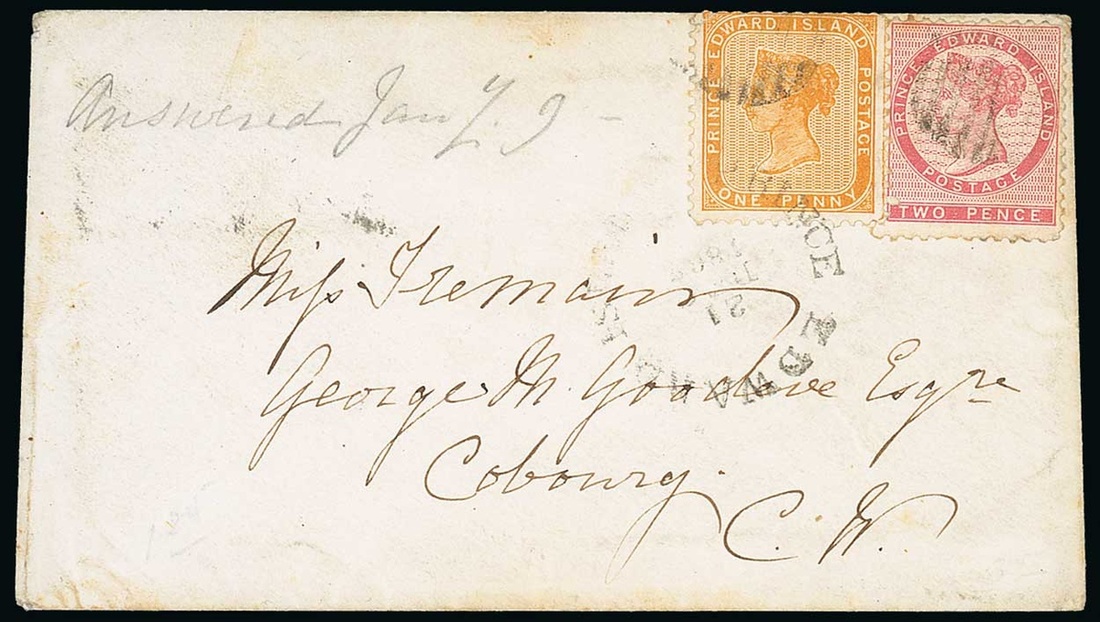 PRINCE EDWARD ISLAND POSTAGE
ONE PENNY
PRINCE EDWARD ISLAND
POSTAGE
TWO PENCE
Answered Jany. 9 -
PRINCE EDWARD ISL
21
Miss Tremain
George M. Goodeve Esqre
Cobourg.
C. W.